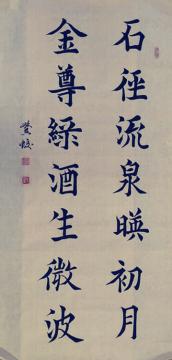 石徑流泉暎初月
金尊綠酒生微波